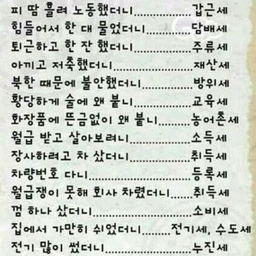 피 땀 흘려 노동했더니..............갑근세
힘들어서 한 대 물었더니...........담배세
퇴근하고 한 잔 했더니..............주류세
아끼고 저축했더니....................재산세
북한 때문에 불안했더니............방위세
황당하게 술에 왜 붙니..............교육세
화장품에 뜬금없이 왜 붙니.......농어촌세
월급 받고 살아보려니...............소득세
장사하려고 차 샀더니...............취득세
차량번호 다니...........................등록세
월급쟁이 못해 회사 차렸더니....취득세
껌 하나 샀더니..........................소비세
집에서 가만히 쉬었더니.......전기세, 수도세
전기 많이 썼더니......................누진세